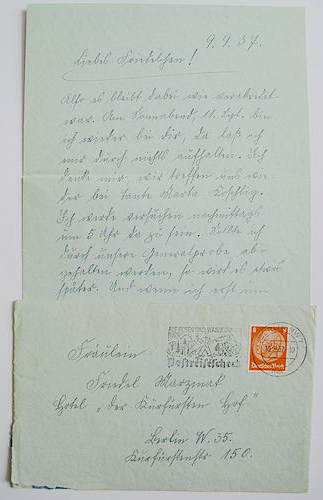 9.9.37.
Liebes Friedelchen!
Also es bleibt dabei wie verabredet
war. Am Sonnabend, 11. Sept. bin
ich wieder bei dir, da laß ich
mir durch nichts aufhalten. Ich
denke mir, wir treffen uns wie
der bei Tante Marta Koschlig.
Ich werde versuchen nachmittags
um 5 Uhr da zu sein. Sollte ich
durch unsere Generalprobe ab-
gehalten werden, so wird es etwas
später. Und wenn ich erst um
Postreisescheck
Deutsches Reich
Fräulein
Friedel Marzinat
Hotel "Der Kurfürsten Hof"
Berlin W. 35.
Kurfürstenstr 150.